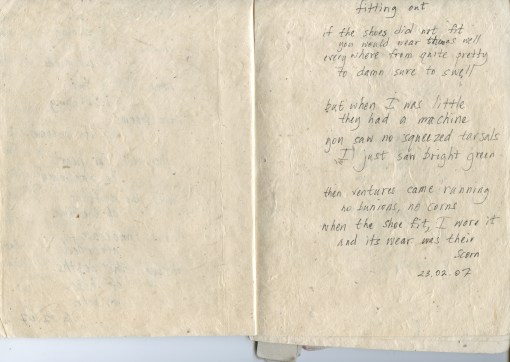 fitting out
if the shoes did not fit
you would wear thongs well
everywhere from quite pretty
to damn sure to swell
but when I was little
they had a machine
you saw no sqeezed tarsals
I just saw bright green
then ventures came running
no bunions, no corns
when the shoe fit, I wore it
and its wear was their
scorn
23.02.07